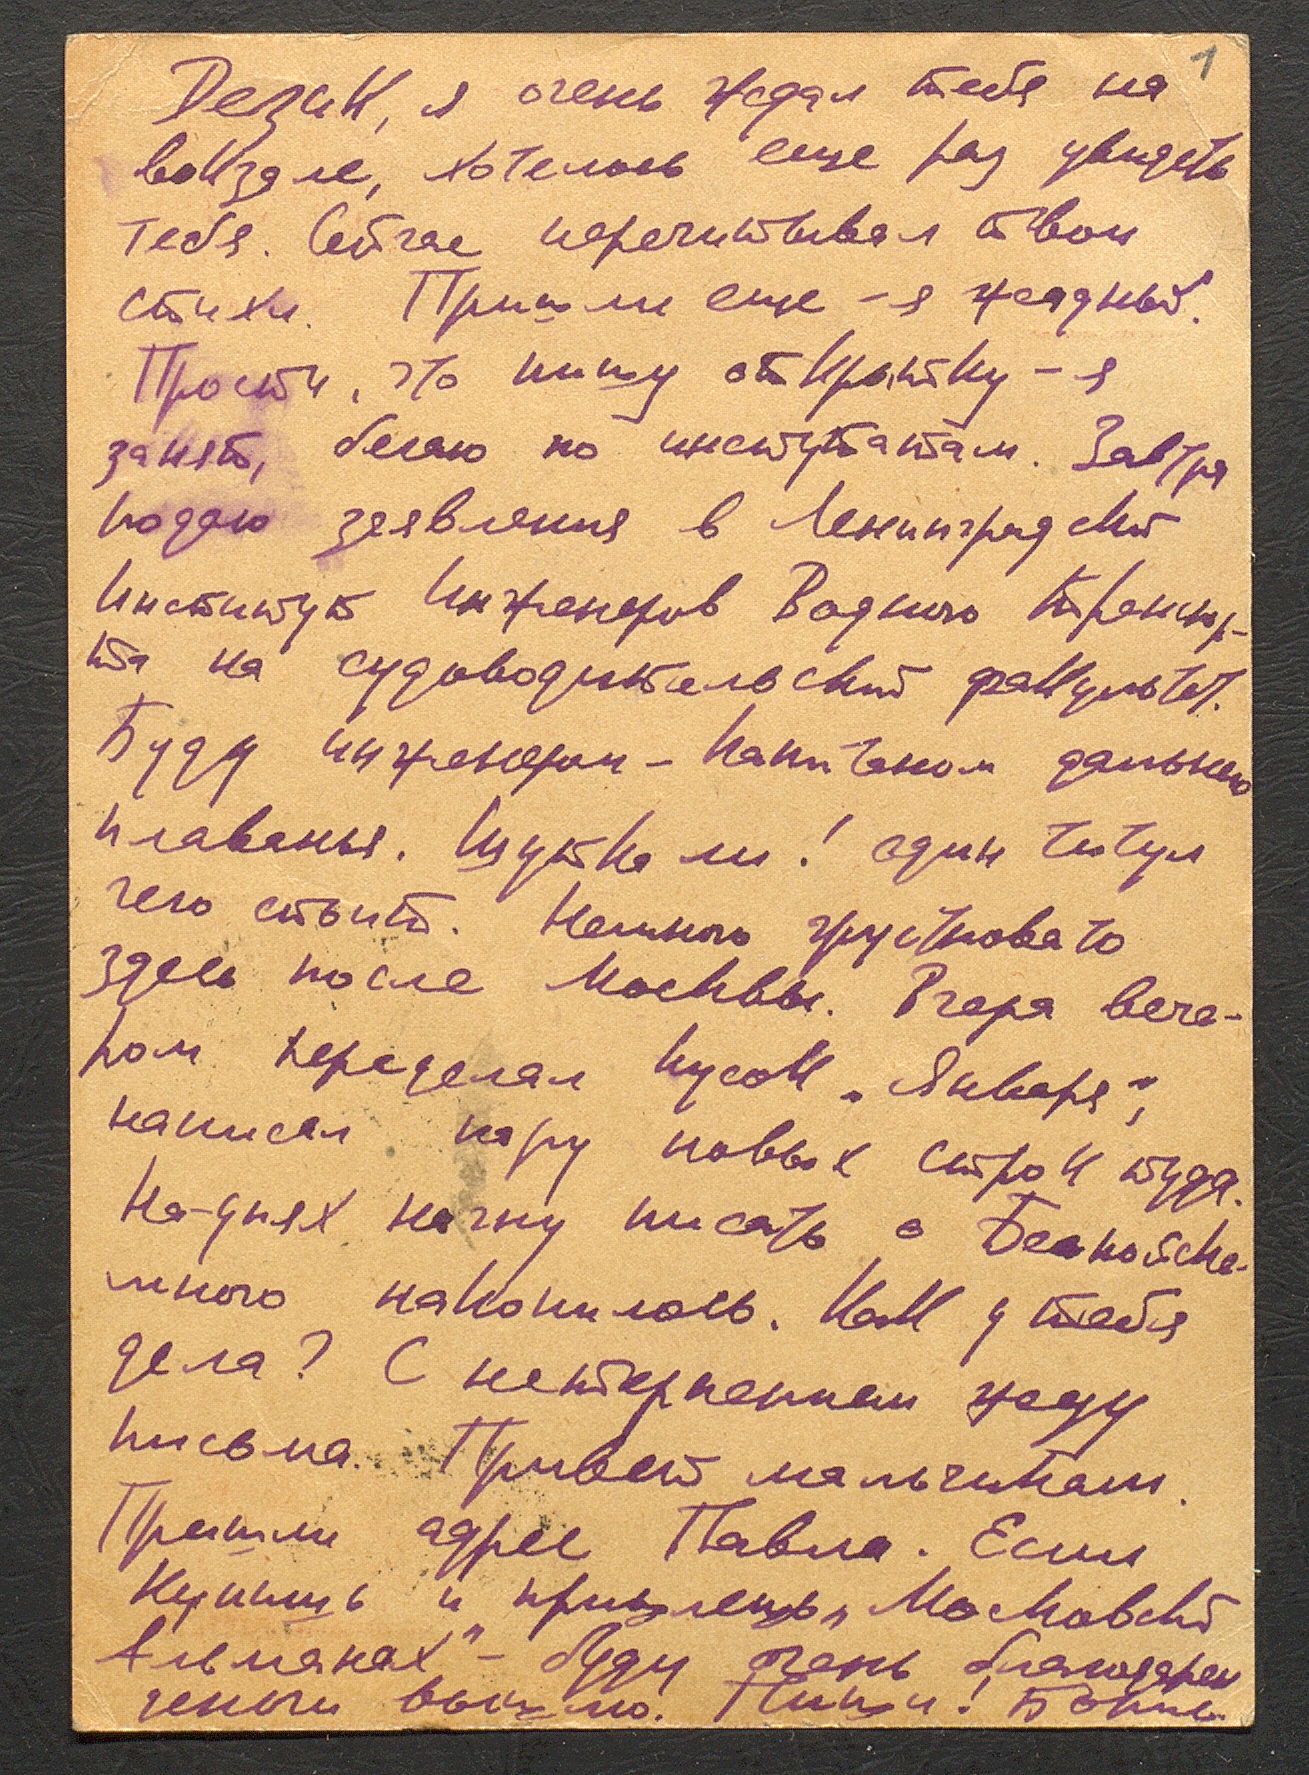 1
Дезик, я очень ждал тебя на
вокзале, хотелось еще раз увидеть
тебя. Сейчас перечитывал твои
стихи. Пришли еще – я жадный.
Прости, что пишу открытку – я
занят, бегаю по инстутатам. Завтра
подаю заявления в Ленинградский
Институт Инженеров Водного Транспор-
та на судоводительский факультет.
Буду инженером – капитаном дальнего
плаванья. Шутка ли! один титул
чего стоит. Немного грустновато
здесь после Москвы. Вчера вече-
ром переделал кусок „Января",
написал пару новых строк туда.
На-днях начну писать о
много накопилось. Как у тебя
дела? С нетерпением жду
письма. Привет мальчикам.
Пришли адрес Павла. Если
купишь и пришлешь „Московский
Альманах" – буду очень благодарен
деньги вышлю. Пиши! Борис